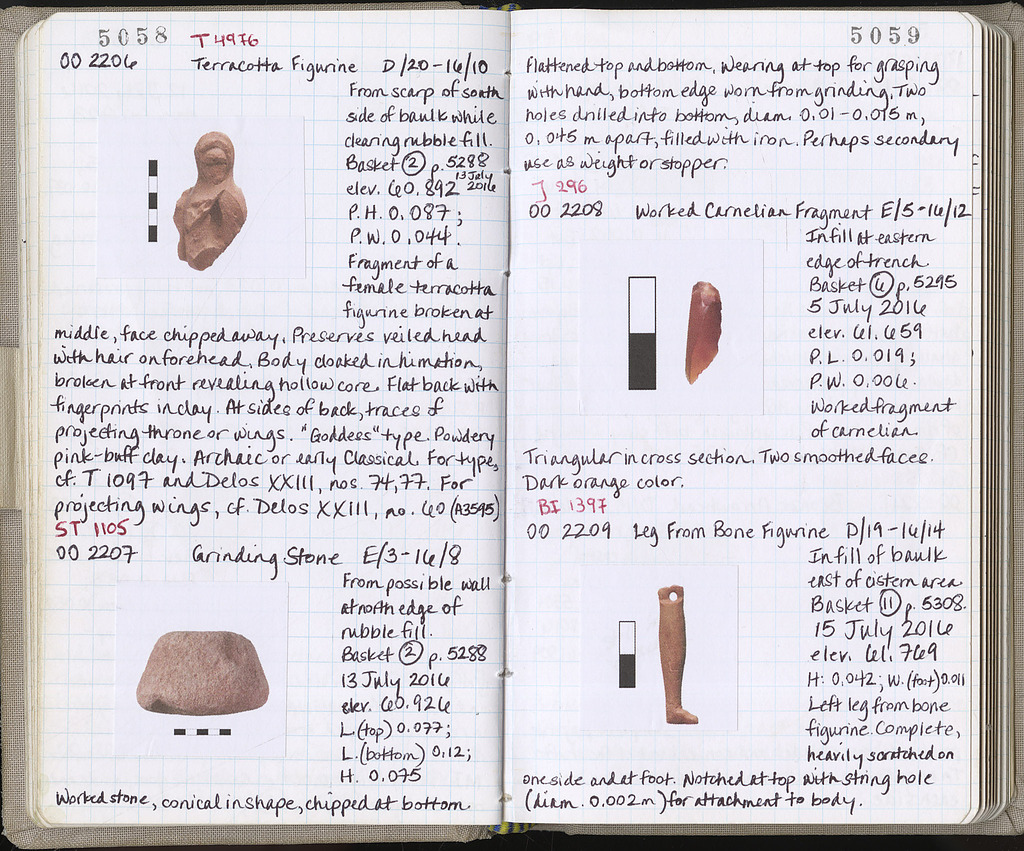 5058
T 4976
OO 2206 Terracotta Figurine D/20-16/10
From scarp of south
side of baulk while
clearing rubble fill.
Basket ② p. 5288
13 July
elev. 60.892 2016
P.H. 0.087;
P.W. 0.044.
Fragment of a
female terracotta
figurine broken at
middle, face chipped away. Preserves veiled head
with hair on forehead. Body cloaked in himation,
broken at front revealing hollow core. Flat back with
fingerprints in clay. At sides of back, traces of
projecting throne or wings. "Goddess" type. Powdery
pink-buff clay. Archaic or early Classical. For type,
cf. T 1097 and Delos XXIII, nos. 74, 77. For
projecting wings, cf. Delos XXIII, no. 60 (A3595)
ST 1105
OO 2207 Grinding Stone E/3-16/8
From possible wall
at north edge of
rubble fill.
Basket ② p. 5288
13 July 2016
elev. 60.926
L.(top) 0.077;
L.(bottom) 0.12;
H. 0.075
Worked stone, conical in shape, chipped at bottom.
5059
flattened top and bottom. Wearing at top for grasping
with hand, bottom edge worn from grinding. Two
holes drilled into bottom, diam. 0.01-0.015 m,
0.045 m apart, filled with iron. Perhaps secondary
use as weight or stopper.
J 296
OO 2208 Worked Carnelian Fragment E/5-16/12
In fill at eastern
edge of trench
Basket ⑥ p. 5295
5 July 2016
elev. 61.659
P.L. 0.019;
P.W. 0.006.
Worked fragment
of carnelian.
Triangular in cross section. Two smoothed faces.
Dark orange color.
BI 1397
OO 2209 Leg From Bone Figurine D/19-16/14
In fill of baulk
east of cistern area
Basket ⑪ p. 5308.
15 July 2016
elev. 61.769
H: 0.042; W.(foot) 0.011
Left leg from bone
figurine. Complete,
heavily scratched on
one side and at foot. Notched at top with string hole
(diam. 0.002m) for attachment to body.